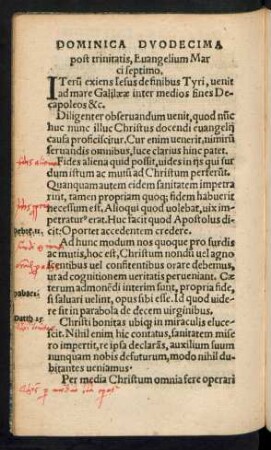 DOMINICA DVODECIMA
post trinitatis, Euangelium Mar
ci septimo.
ITerũ exiens Iesus de finibus Tyri, uenit
ad mare Galilææ inter medios fines De
capoleos &c.
Diligenter obseruandum uenit, quod nũc
huc nunc illuc Christus docendi euangelij
causa proficiscitur. Cur enim uenerit, nimirũ
seruandis omnibus, luce clarius hinc patet.
Fides aliena quid possit, uides in ijs qui sur
dum istum ac mutũ ad Christum perferũt.
Quanquam autem eidem sanitatem impetra
rint, tamen propriam quoq; fidem habuerit
necessum est. Alioqui quod uolebat, uix im
petratur⁹ erat. Huc facit quod Apostolus di
cit: Oportet accedentem credere.
Hebre.11.
Ad hunc modum nos quoque pro surdis
ac mutis, hoc est, Christum nondũ uel agno
scentibus uel confitentibus orare debemus,
ut ad cognitionem ueritatis perueniant. Cæ
terum admonẽdi interim sunt, propria fide,
si saluari uelint, opus sibi esse. Id quod uide
re sit in parabola de decem uirginibus.
Matth 25
Christi bonitas ubiq; in miraculis eluce
scit. Nihil enim hic contatus, sanitatem mise
ro impertit, re ipsa declarãs, auxilium suum
nunquam nobis defuturum, modo nihil du
bitantes ueniamus.
Per media Christum omnia fere operari